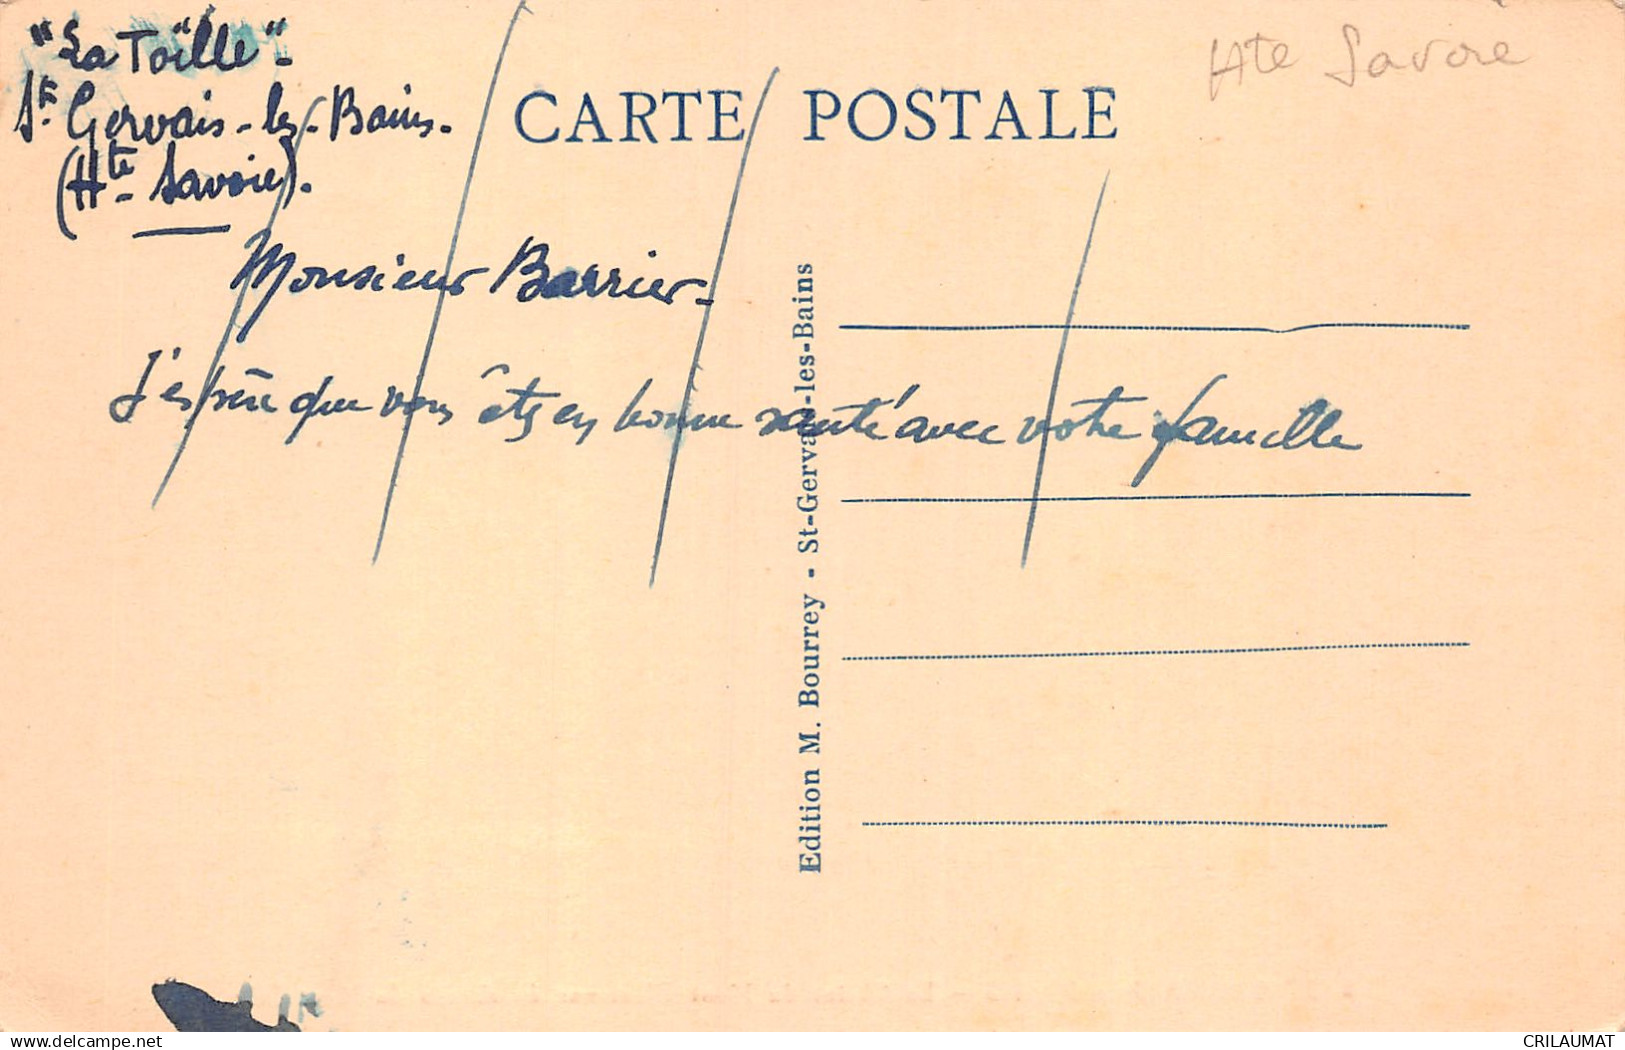 "La Toïlle"-
St Gervais-les-Bains.
(Hte- Savoie).
CARTE POSTALE
Hte Savoie
Monsieur Barrier-
J'espère que vous êtes en bonne santé avec votre famille
Edition M. Bourrey - St-Gervais-les-Bains
CRILAUMAT